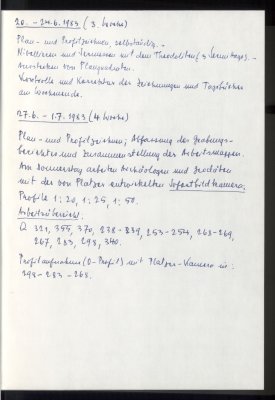 20. - 24.6.1983 (3. Woche)
Plan- und Profilzeichnen, selbständig. -
Nivellieren und Vermessen mit dem Theodoliten (3 Vermessgs. -
Ausstecken von Planquadraten.
Kontrolle und Korrektur der Zeichnungen und Tagebücher
am Wochenende.
27.6. - 1.7.1983 (4. Woche)
Plan- und Profilzeichnen; Abfassung des Grabungs-
berichtes und Zusammenstellung der Arbeitsmappen.
Am Donnerstag arbeiten Archäologen und Geodäten
mit der von Platzer entwickelten Sofortbildkamera.
Profile 1:20, 1:25, 1:50.
Arbeitsübersicht:
Q 321, 355, 370, 238-239, 253-254, 268-269,
267, 283, 298, 340.
Profilaufnahme (O-Profil) mit Platzer-Kamera in:
298-283-268.